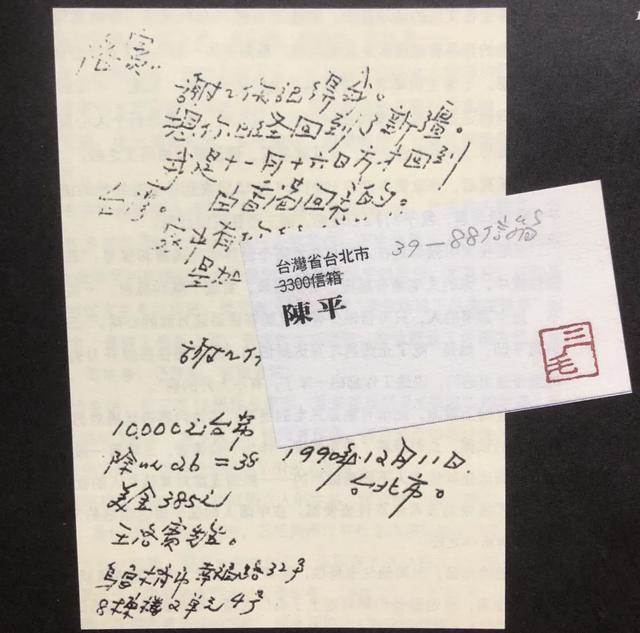 洛賓：
謝謝你記得我。
想你已經回到了新疆。
我是十一月十六日方才回到
台灣。由香港回來的。
家中有你
謝謝你
台灣省台北市
3300信箱
39-88信箱
陳平
三毛
10.000元台幣
除以26=38
美金385元
王洛賓
烏魯木齊市幸福路32号
8棟樓2單元4号
1990年12月11日.
台北市。